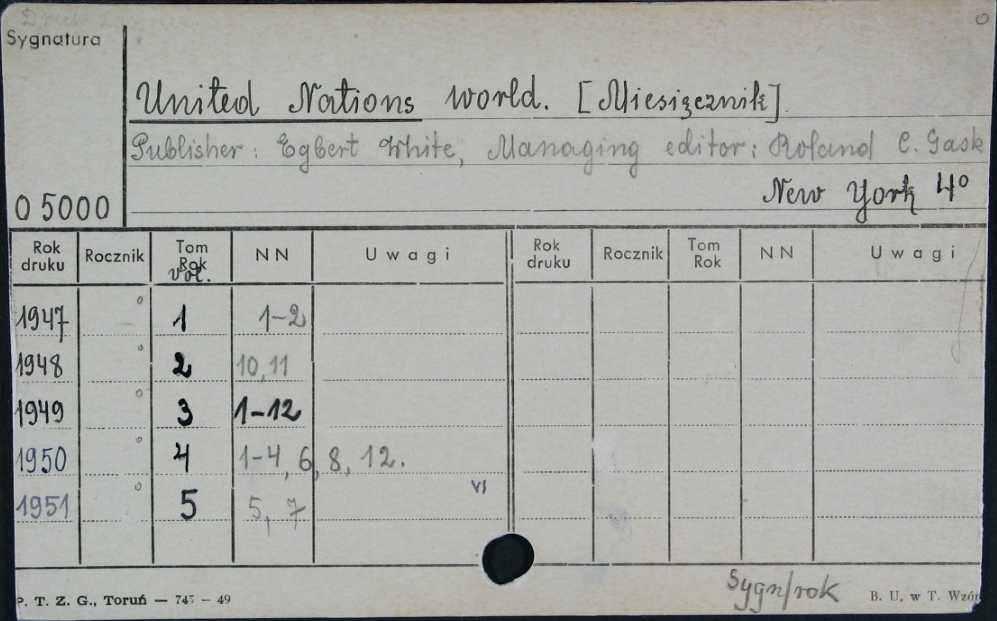 Sygnatura
United Nations world. [Miesięcznik]
Publisher: Egbert White, Managing editor: Roland C. Gask
New York 4°
O 5000
Rok druku Rocznik Tom Rok vol. NN Uwagi Rok druku Rocznik Tom Rok NN Uwagi
1947 1 1-2
1948 2 10, 11
1949 3 1-12
1950 4 1-4, 6, 8, 12.
1951 5 5, 7 VI
Sygn/rok
P. T. Z. G., Toruń — 745 — 49 B. U. w T. Wzór